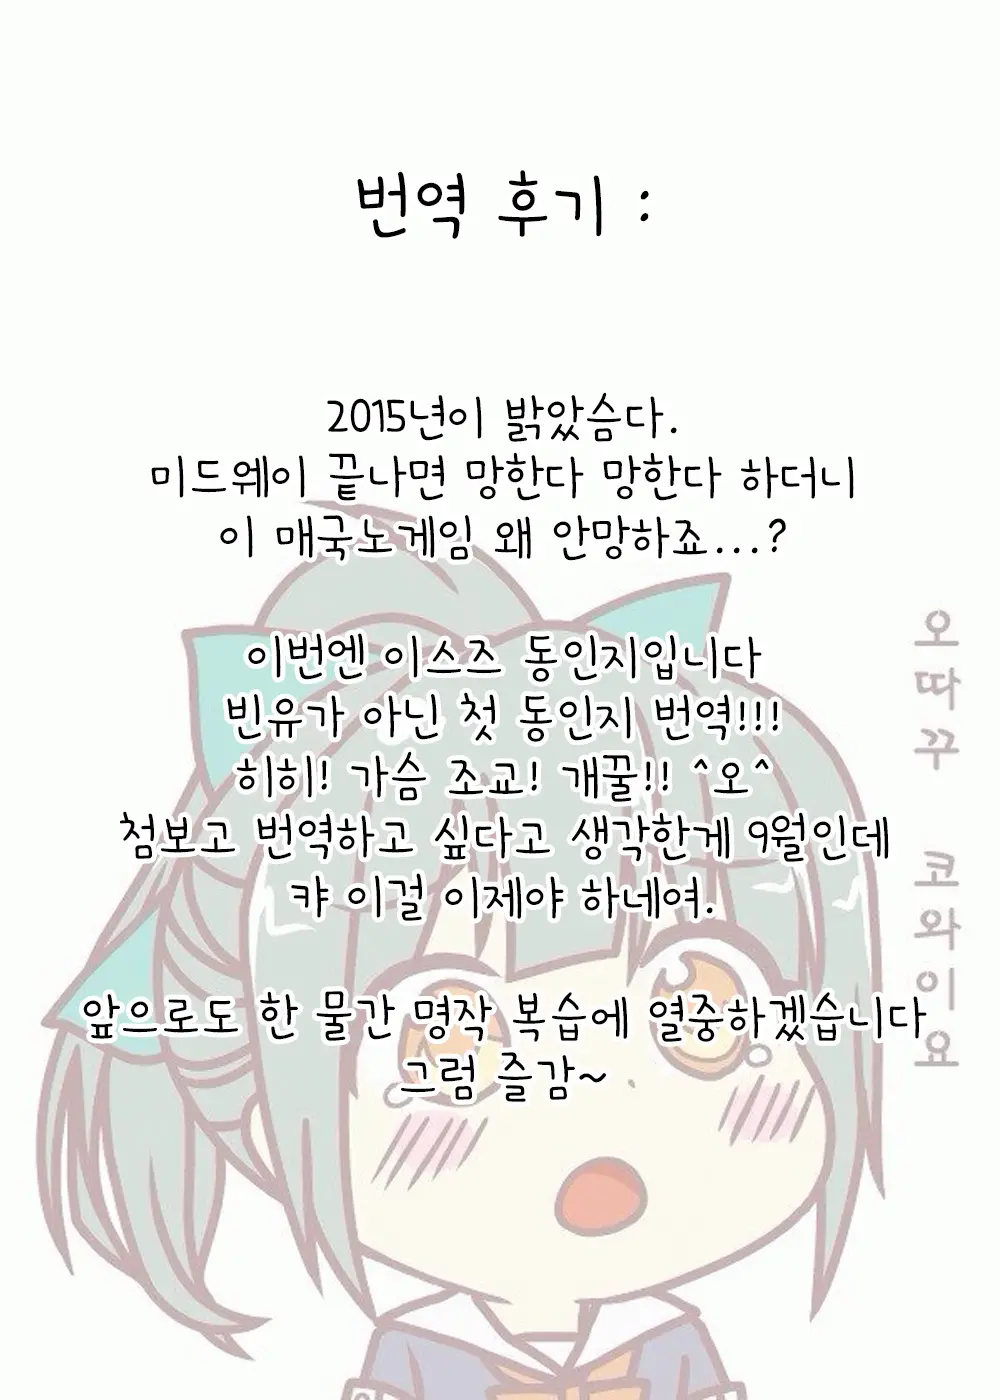 번역 후기 :
2015년이 밝았슴다.
미드웨이 끝나면 망한다 망한다 하더니
이 매국노게임 왜 안망하죠...?
이번엔 이스즈 동인지입니다
빈유가 아닌 첫 동인지 번역!!!
히히! 가슴 조교! 개꿀!! ^오^
첨보고 번역하고 싶다고 생각한게 9월인데
캬 이걸 이제야 하네여.
앞으로도 한 물간 명작 복습에 열중하겠습니다
그럼 즐감~
오따꾸 코와이요